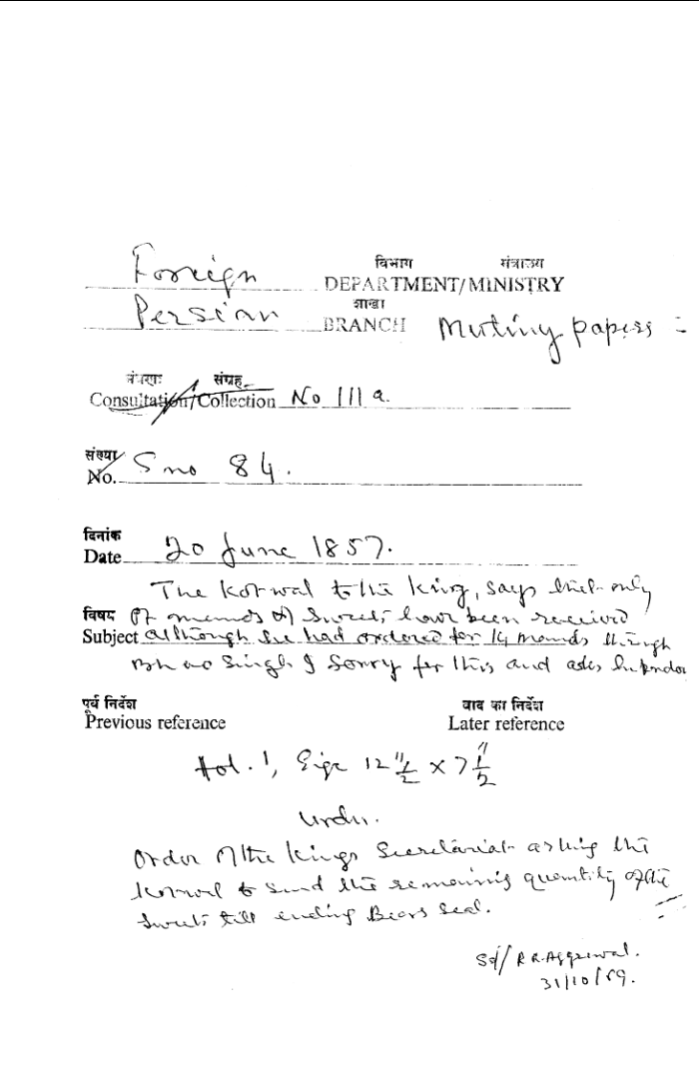 विभाग मंत्रालय
Foreign DEPARTMENT/MINISTRY
शाखा
Persian BRANCH Mutiny papers :
संग्रह
Consultation/Collection No III a.
संख्या
No. S no 84.
दिनांक
Date 20 June 1857.
The Kotwal to the King, says that only
विषय of sweets have been received
Subject although he had ordered for 14 maunds through
Singh. Sorry for this and asks
पूर्व निर्देश बाद का निर्देश
Previous reference Later reference
1, Size 12 1/2 × 7 1/2
Urdu.
Order of the Kings Secretariat asking the
Kotwal to send the remaining quantity of the
sweets till evening Bears Seal.
Sd/ R.R. Aggarwal.
31/10/